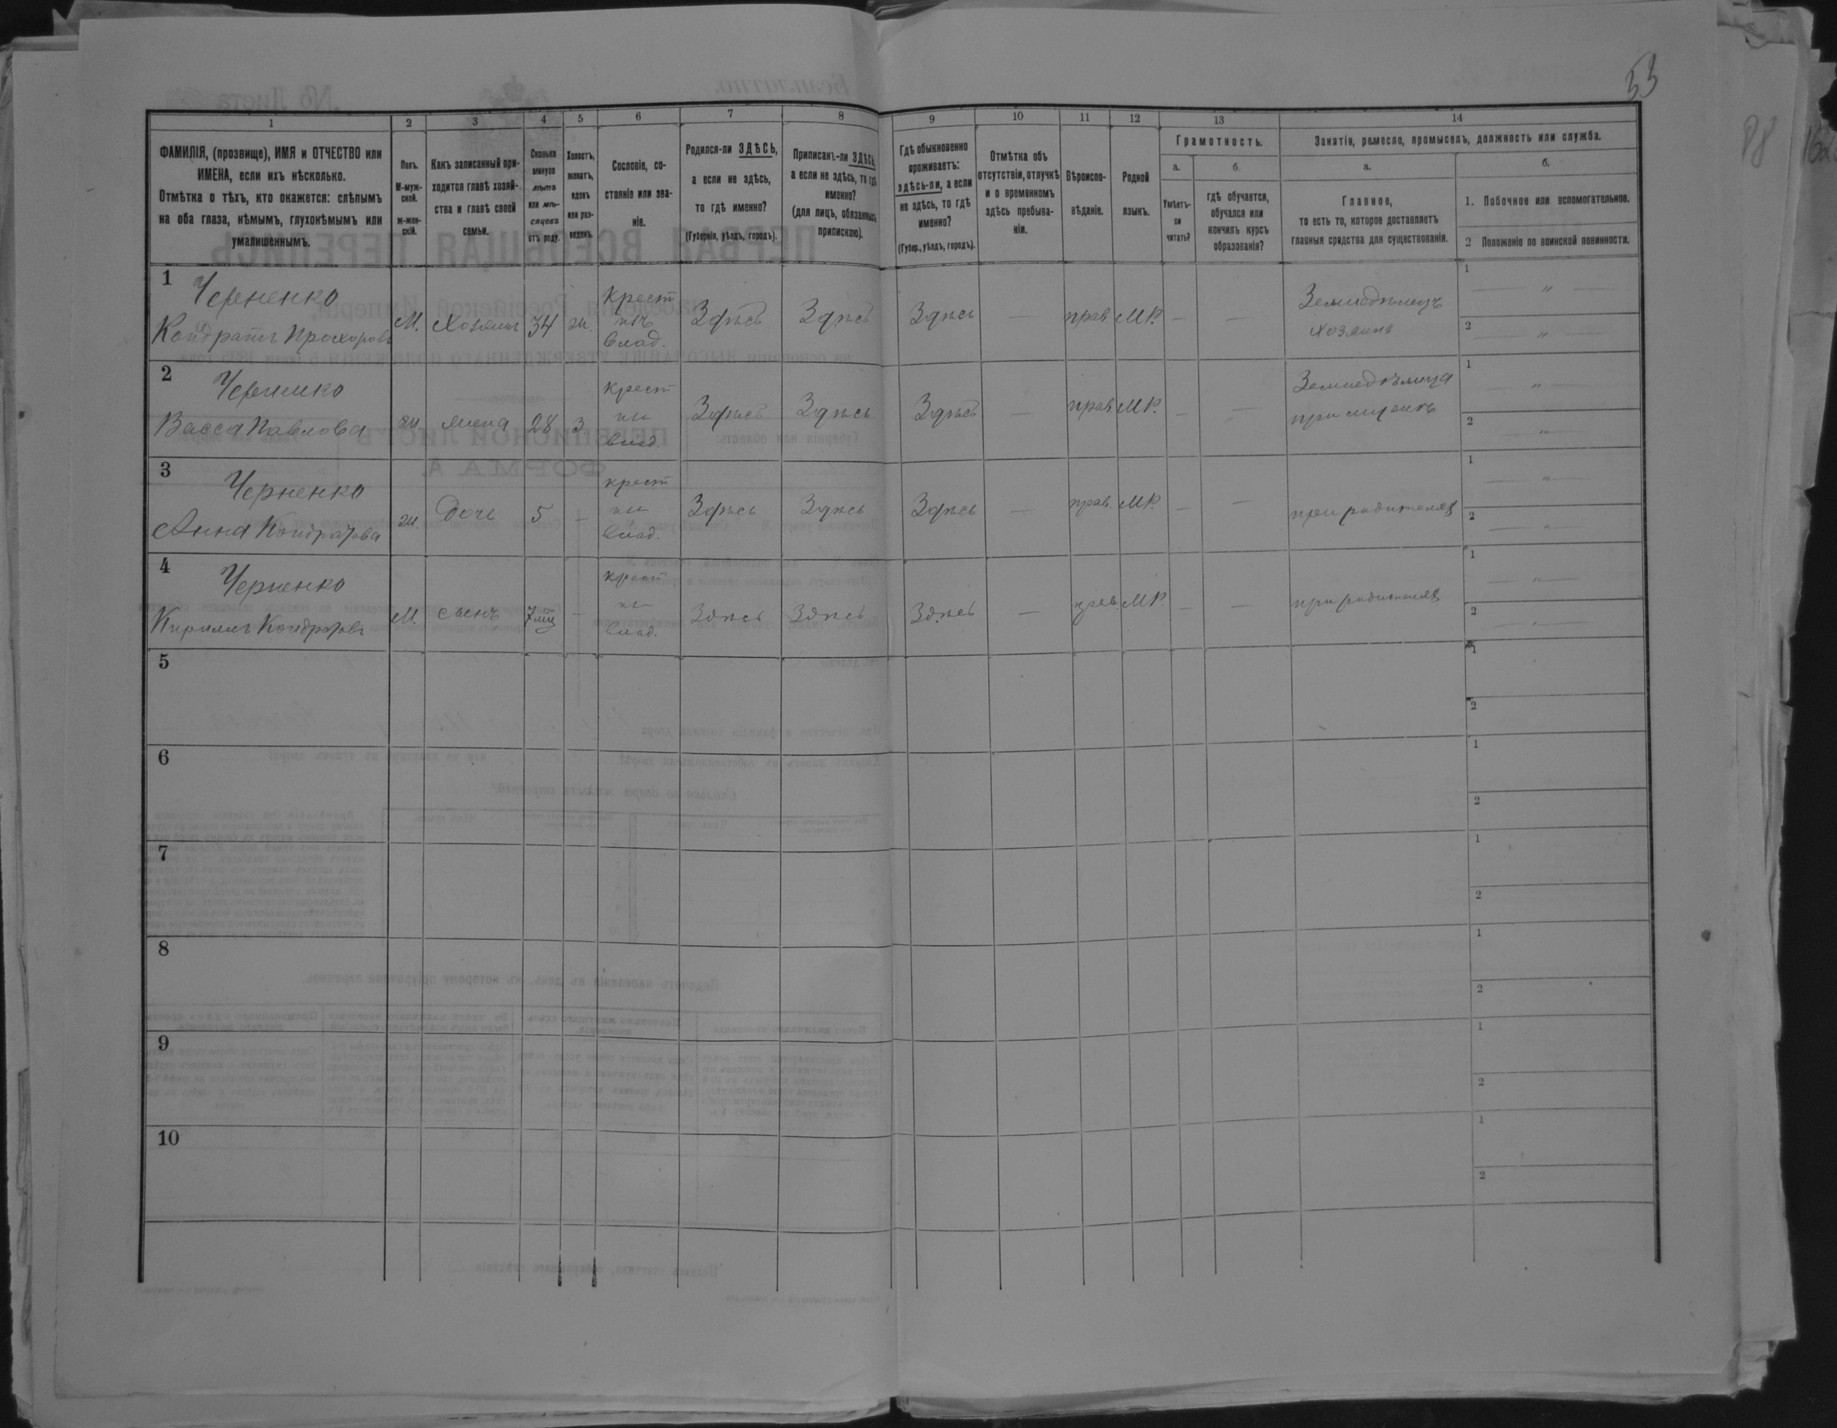 53
88
1
2
3
4
5
6
7
8
9
10
11
12
13
14
ФАМИЛІЯ, (прозвище), ИМЯ и ОТЧЕСТВО или
ИМЕНА, если ихъ нѣсколько.
Отмѣтка о тѣхъ, кто окажется: слѣпымъ
на оба глаза, нѣмымъ, глухонѣмымъ или
умалишеннымъ.
Полъ.
М-муж-
ской.
ж-жен-
скій.
Какъ записанный при-
ходится главѣ хозяй-
ства и главѣ своей
семьи.
Сколько
минуло
лѣтъ
или мѣ-
сяцевъ
отъ роду.
Холостъ,
женатъ,
вдовъ
или раз-
веденъ.
Сословіе, со-
стояніе или зва-
ніе.
Родился-ли ЗДѢСЬ,
а если не здѣсь,
то гдѣ именно?
(Губернія, уѣздъ, городъ).
Приписанъ-ли ЗДѢСЬ,
а если не здѣсь, то гдѣ
именно?
(для лицъ, обязанныхъ
припискою).
Гдѣ обыкновенно
проживаетъ:
здѣсь-ли, а если
не здѣсь, то гдѣ
именно?
(Губер., уѣздъ, городъ).
Отмѣтка объ
отсутствіи, отлучкѣ
и о временномъ
здѣсь пребыва-
ніи.
Вѣроиспо-
вѣданіе.
Родной
языкъ.
Грамотность.
а.
Умѣетъ-
ли
читать?
б.
гдѣ обучается,
обучался или
кончилъ курсъ
образованія?
Занятіе, ремесло, промыселъ, должность или служба.
а.
Главное,
то есть то, которое доставляетъ
главныя средства для существованія.
б.
1. Побочное или вспомогательное.
2 Положеніе по воинской повинности.
1
Черненко
Кондратъ Прохоровъ
М. Хозяинъ 34 ж.
крест
нъ
влад.
Здѣсь Здѣсь Здѣсь — прав МР. — —
Земледѣлецъ
хозяинъ
1 — „ —
2 — „ —
2
Черненко
Васса Павлова
ж. жена 28 з
крест
ки
влад.
Здѣсь Здѣсь Здѣсь — прав МР. — —
Земледѣлица
при мужѣ
1 — „ —
2 — „ —
3
Черненко
Анна Кондратова
ж. дочь 5 —
крест
ки
влад.
Здѣсь Здѣсь Здѣсь — прав. МР. — —
при родителяхъ
1 — „ —
2 — „ —
4
Черненко
Кирилъ Кондратовъ
М. сынъ 7 мц —
крест
нъ
влад.
Здѣсь Здѣсь Здѣсь — прав МР. — —
при родителяхъ
1 — „ —
2 — „ —
5
1
2
6
1
2
7
1
2
8
1
2
9
1
2
10
1
2